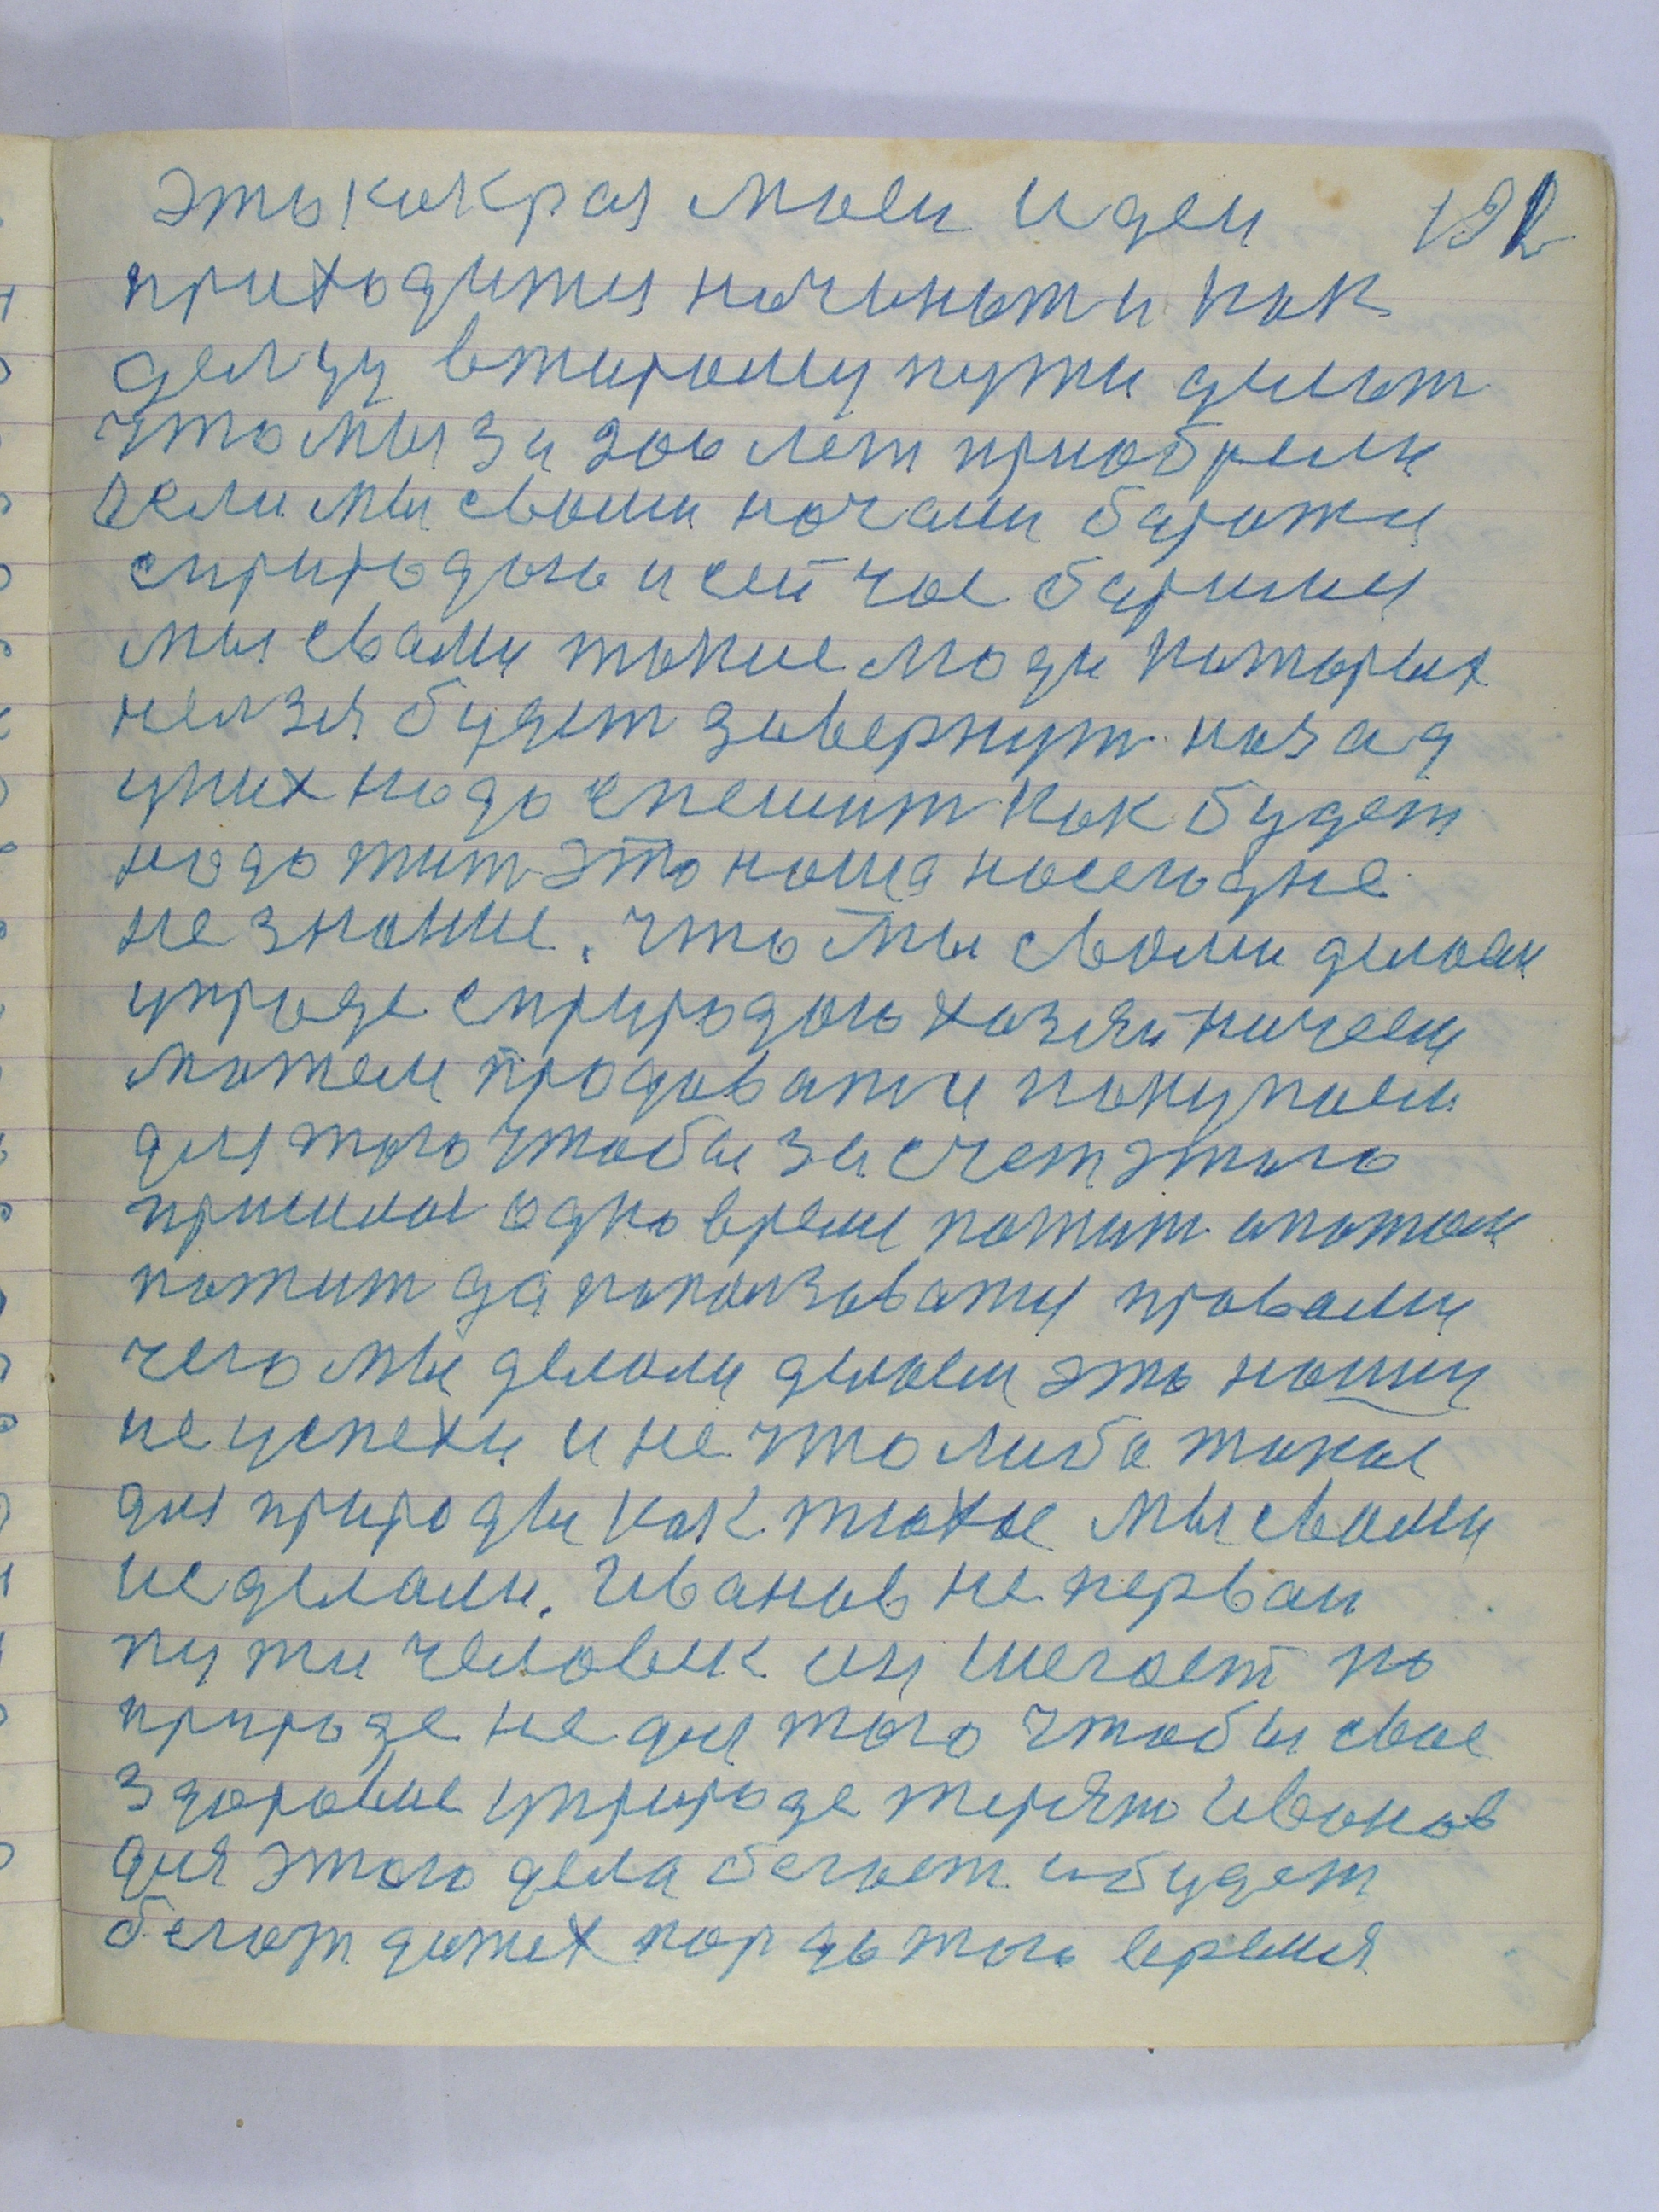 это как раз моеи идеи 192
приходится начинати как
делцу втарому пути думат
что мы за 200 лет приобрели
если мы свами начали баротся
сприродою и сейчас баримся
мы свами такие люди каторых
нелзя будет завернут назад
уних надо спешит как будет
надо жит это наша насегодне
не знание. что мы свами делаем
уприроде сприродою хазяйничаем
можем продавати покупаем
для того чтобы за счет этого
пришлос одно время пожит а потом
пожит да попользоватся правами
чего мы делали делаем это нашы
не успехи и не что либо такое
для природы как плохое мы свами
не делали. Иванов не первай
пути человек он шегает по
природе не для того чтобы свое
здоровие уприроде терят Иванов
для этого дела бегает и будет
бегат до тех пор до того время